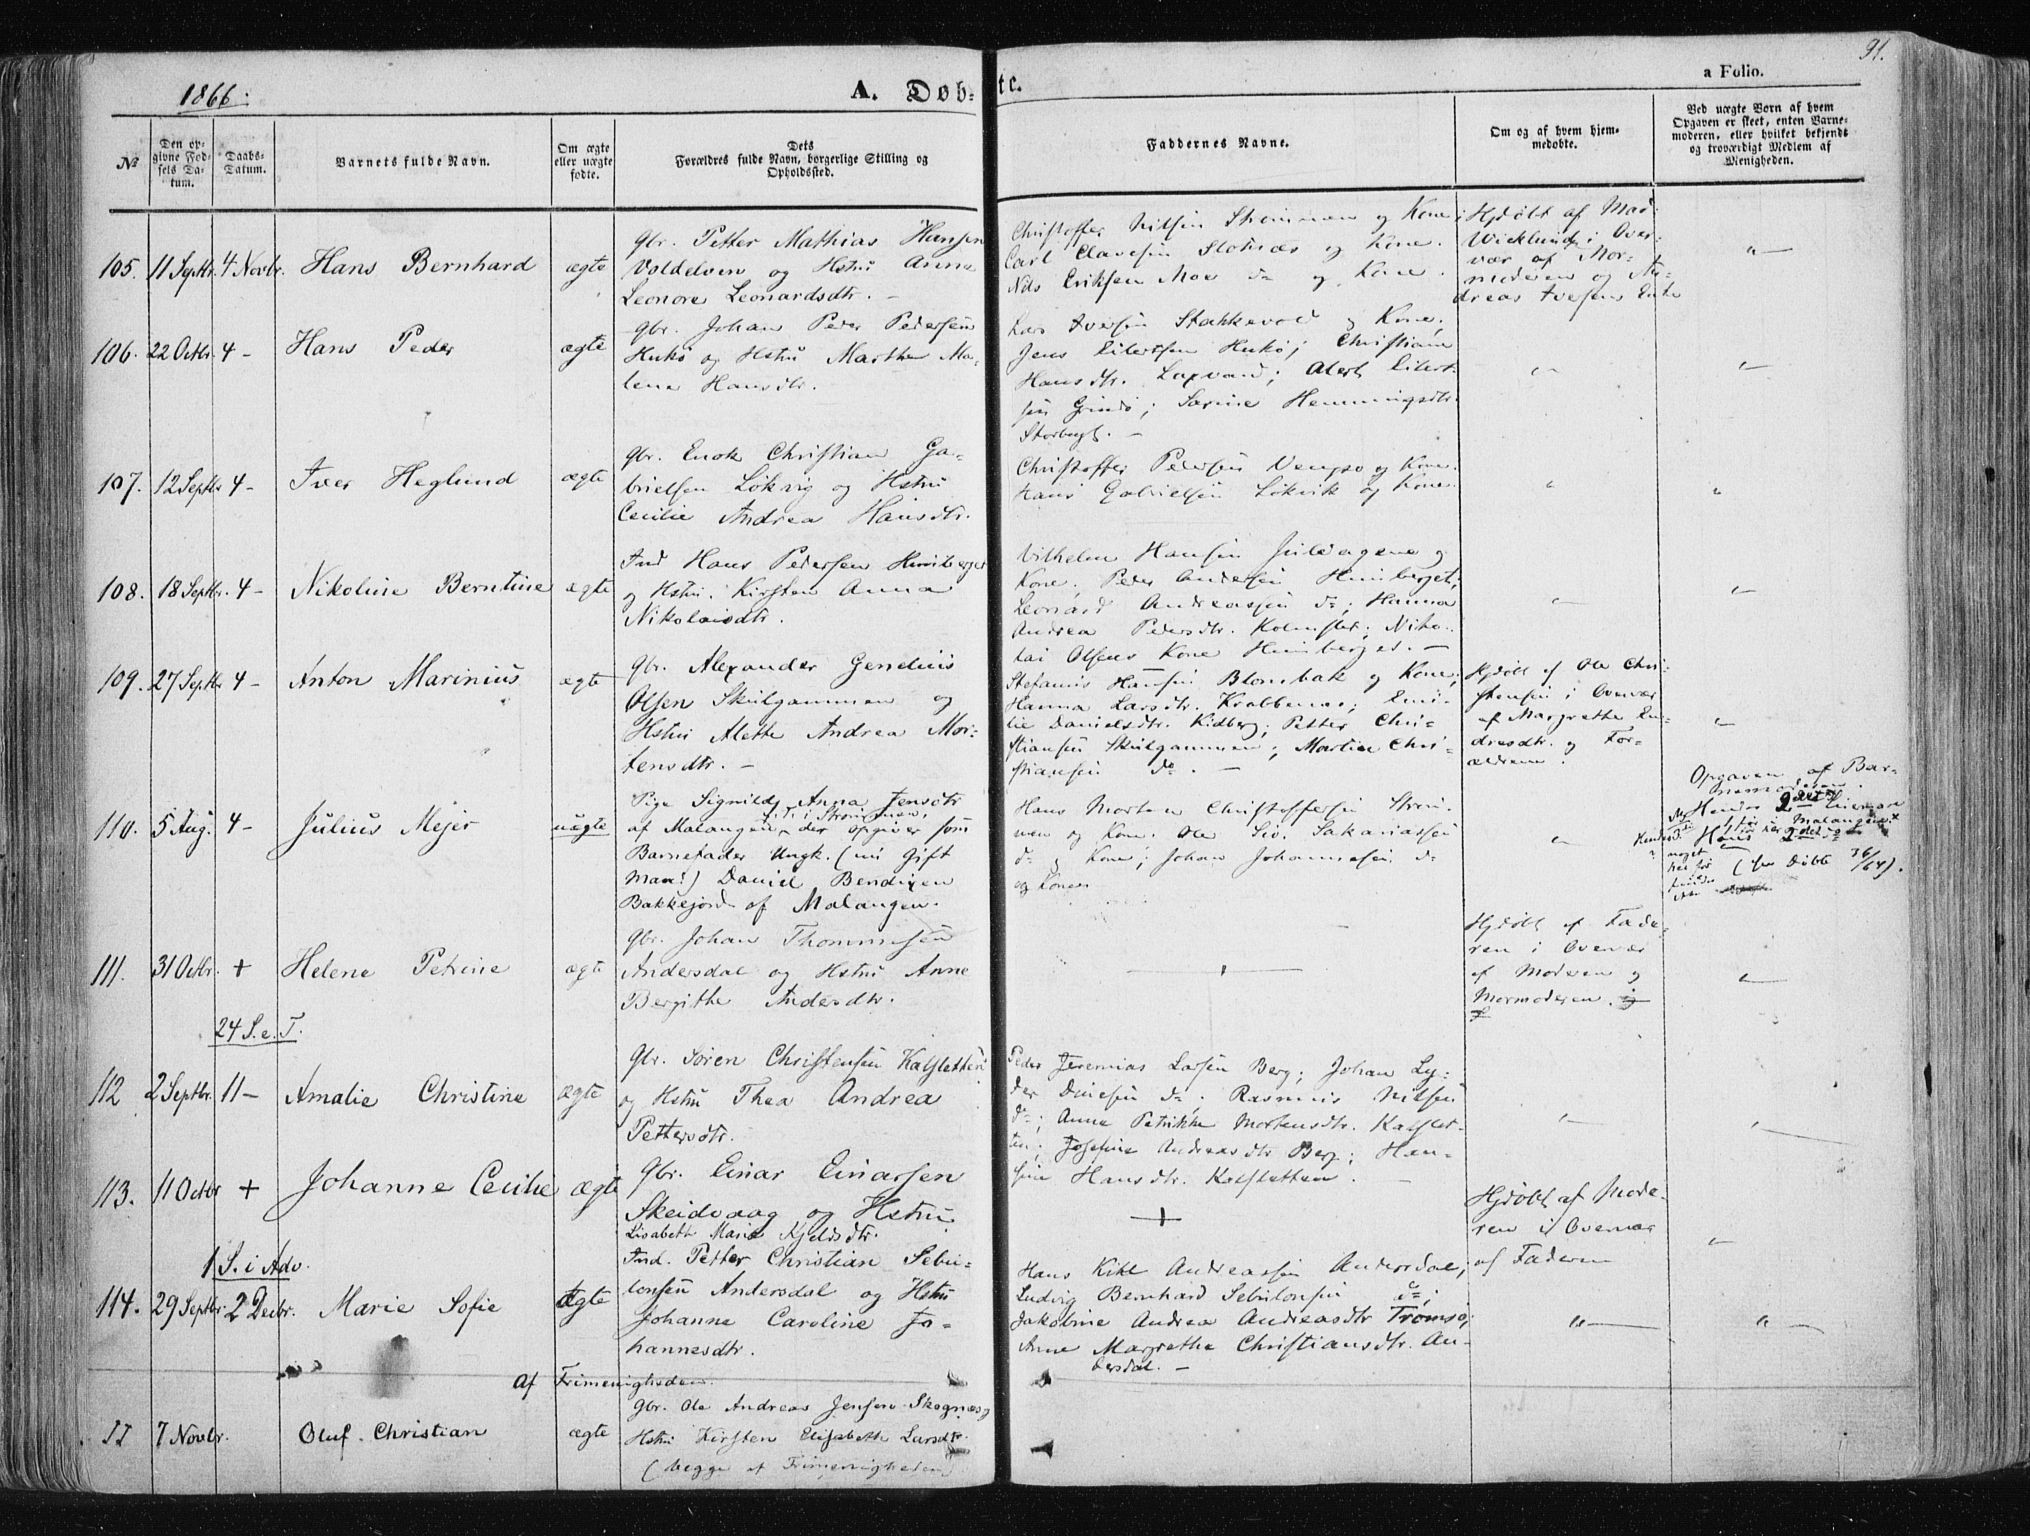 1866.
A. Døb-
te.
91.
a Folio.
No
Den op-
givne Fød-
sels Da-
tum.
Daabs-
Datum.
Barnets fulde Navn.
Om ægte
eller uægte
fødte.
Dets
Forældres fulde Navn, borgerlige Stilling og
Opholdssted.
Faddernes Navne.
Om og af hvem hjem-
medøbte.
Ved uægte Børn af hvem
Opgaven er skeet, enten Barne-
moderen, eller hvilket bekjendt
og troværdigt Medlem af
Menigheden.
105. 11 Septbr. 4 Novbr. Hans Bernhard ægte
Gbr. Petter Mathias Hansen
Voldelven og Hstru Anna
Leonore Leonardsdtr. -
Christoffer Nilsen Strømmen og Kone;
Carl Clavesen Slotnæs og Kone.
Nils Eriksen Moe do og Kone.
Hjdøbt af Mad:
Wicklund i Over-
vær af Mor-
moderen og An-
dreas Iversens Enke
106. 22 Octbr. 4 - Hans Peder ægte
Gbr. Johan Peder Pedersen
Hukø og Hstru Marthe Ma-
lene Hansdtr.
Lars Iversen Stakkevold og Kone;
Jens Eilertsen Hukø; Christiane
Hansdtr. Laxvand; Alert Eilert-
sen Grindø; Sarine Hemmingsdtr.
Storbergt. -
107. 12 Septbr 4 - Iver Heglund ægte
Gbr. Enok Christian Ga-
brielsen Løkvig og Hstru
Cecilie Andrea Hansdtr.
Christoffer Pedersen Vengsø og Kone.
Hans Gabrielsen Løkvik og Kone.
108. 18 Septbr. 4 - Nikoline Berntine ægte
Ind Hans Pedersen
og Hstru. Kirsten Anna
Nikolaisdtr.
Vilhelm Hansen og
Kone; Peder Andersen
Leonard Andreassen do; Hanna
Andrea Pedersdtr. Kolnslet; Niko-
lai Olsens Kone
109. 27 Septbr 4 - Anton Marinius ægte
Gbr. Alexander Gendius
Olsen Skulgammen og
Hstru Alette Andrea Mor-
tensdtr. -
Stefanus Hansen Blombak og Kone;
Hanna Larsdtr. Krabbenæs; Emi-
lie Danielsdtr. Kidberg; Petter Chri-
stiansen Skulgammen; Martin Chri-
stiansen do. -
Hjdøbt af Ole Chri-
stensen i Overvær
af Margrethe En-
dresdtr. og For-
ældrene.
110. 5 Aug. 4 - Julius Mejer uægte
Pige Signild Anna Jensdtr
af Malangen, der opgiver som
Barnefader Ungk. (nu gift
Man!) Daniel Bendixen
Bakkejord af Malangen.
Hans Morten Christoffersen Strøm-
men og Kone. Ole Sakariassen
do og Kone; Johan Johannesen do
og Kone
Opgaven af Bar-
nemoderen.
Hendes 2det Leiermaal
(see Døbte 36/64).
111. 31 Octbr. + Helene Petrine ægte
Gbr. Johan Thommesen
Andersdal og Hstru Anne
Bergithe Andersdtr.
Hjdøbt af Fade-
ren i Overvær
af Moderen og
Mormoderen.
24 S. e. T.
112 2 Septbr. 11 - Amalie Christine ægte
Gbr. Søren Christensen Kalfsletten
og Hstru Thea Andrea
Pettersdtr.
Peder Jeremias Larsen Berg; Johan Ly-
der Dinesen do; Rasmus Nilsen
do; Anne Petrikke Mortensdtr. Kalfslet-
ten; Josefine Andreasdtr Berg; Han-
sine Hansdtr. Kalfsletten.
113. 11 Octbr + Johanne Cecilie ægte
Gbr. Einar Einarsen
Skeidvaag og Hstru
Lisabeth Marie Kjeldsdtr.
+
Hjdøbt af Mode-
ren i Overvær
af Faderen
1 S. i Adv.
114. 29 Septbr 2 Decbr. Marie Sofie Ægte
Ind. Petter Christian Sebu-
lonsen Andersdal og Hstru
Johanne Caroline Jo-
hannesdtr.
Hans Kihl Andreassen Andersdal;
Ludvig Bernhard Sebulonsen do;
Jakobine Andrea Andreasdtr Tromsø;
Anne Margrethe Christiansdtr. An-
dersdal. -
Af Frimenigheden.
II 7 Novbr. Oluf Christian ægte
Gbr. Ole Andreas Jensen Skognæs og
Hstru Kirsten Elisabeth Larsdtr.
(begge af Frimenigheden)